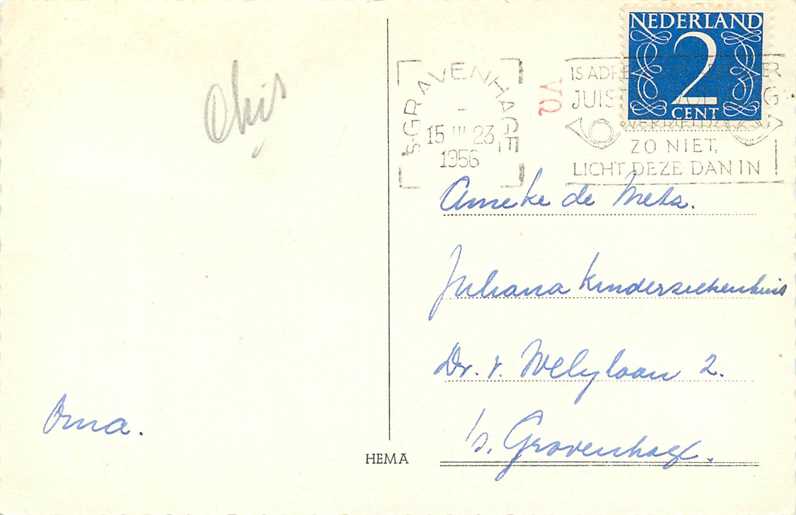 NEDERLAND
2
CENT
's-GRAVENHAGE
15 III 23
1956
IS ADRES
JUIST
ZO NIET,
LICHT DEZE DAN IN
Oma.
Anneke de Metz.
Juliana Kinderziekenhuis
Dr. v. Welylaan 2.
's. Gravenhage.
HEMA